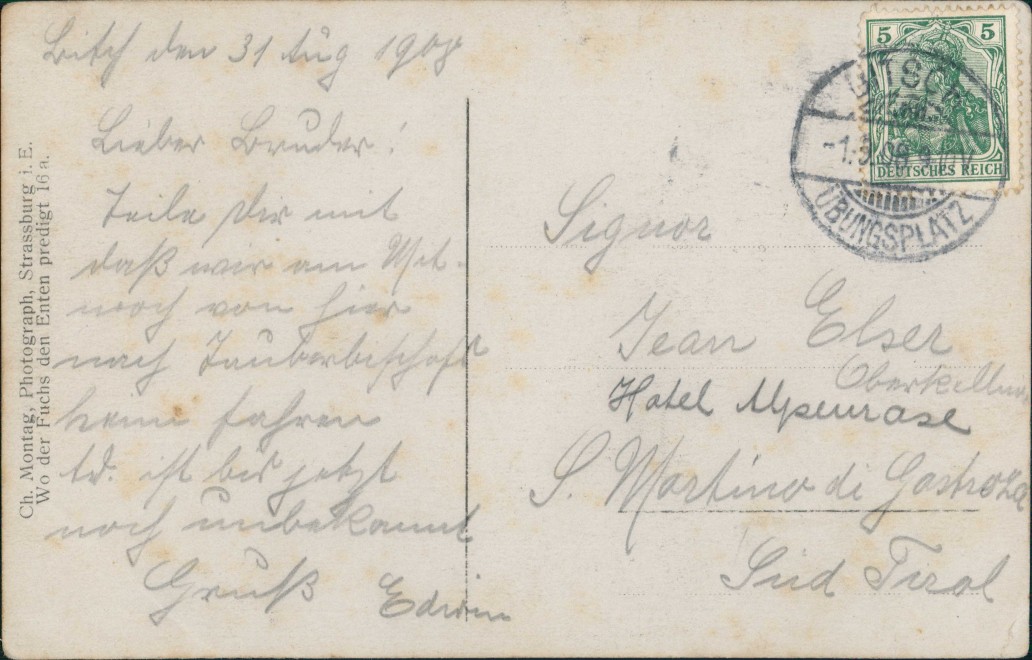 Bitch den 31 Aug 1908
Lieber Bruder!
Teile Dir mit
daß wir am Mit-
woch von hier
nach Tauberbischofs
heim fahren
ist bis jetzt
noch unbekannt
Gruß Edwin
Ch. Montag, Photograph, Strassburg i. E.
Wo der Fuchs den Enten predigt 16a.
5 5
DEUTSCHES REICH
BITSCH
ÜBUNGSPLATZ
Signor
Jean Elser
Oberkellner
Hotel Alpenrose
S. Martino di Gastrozza
Süd Tirol